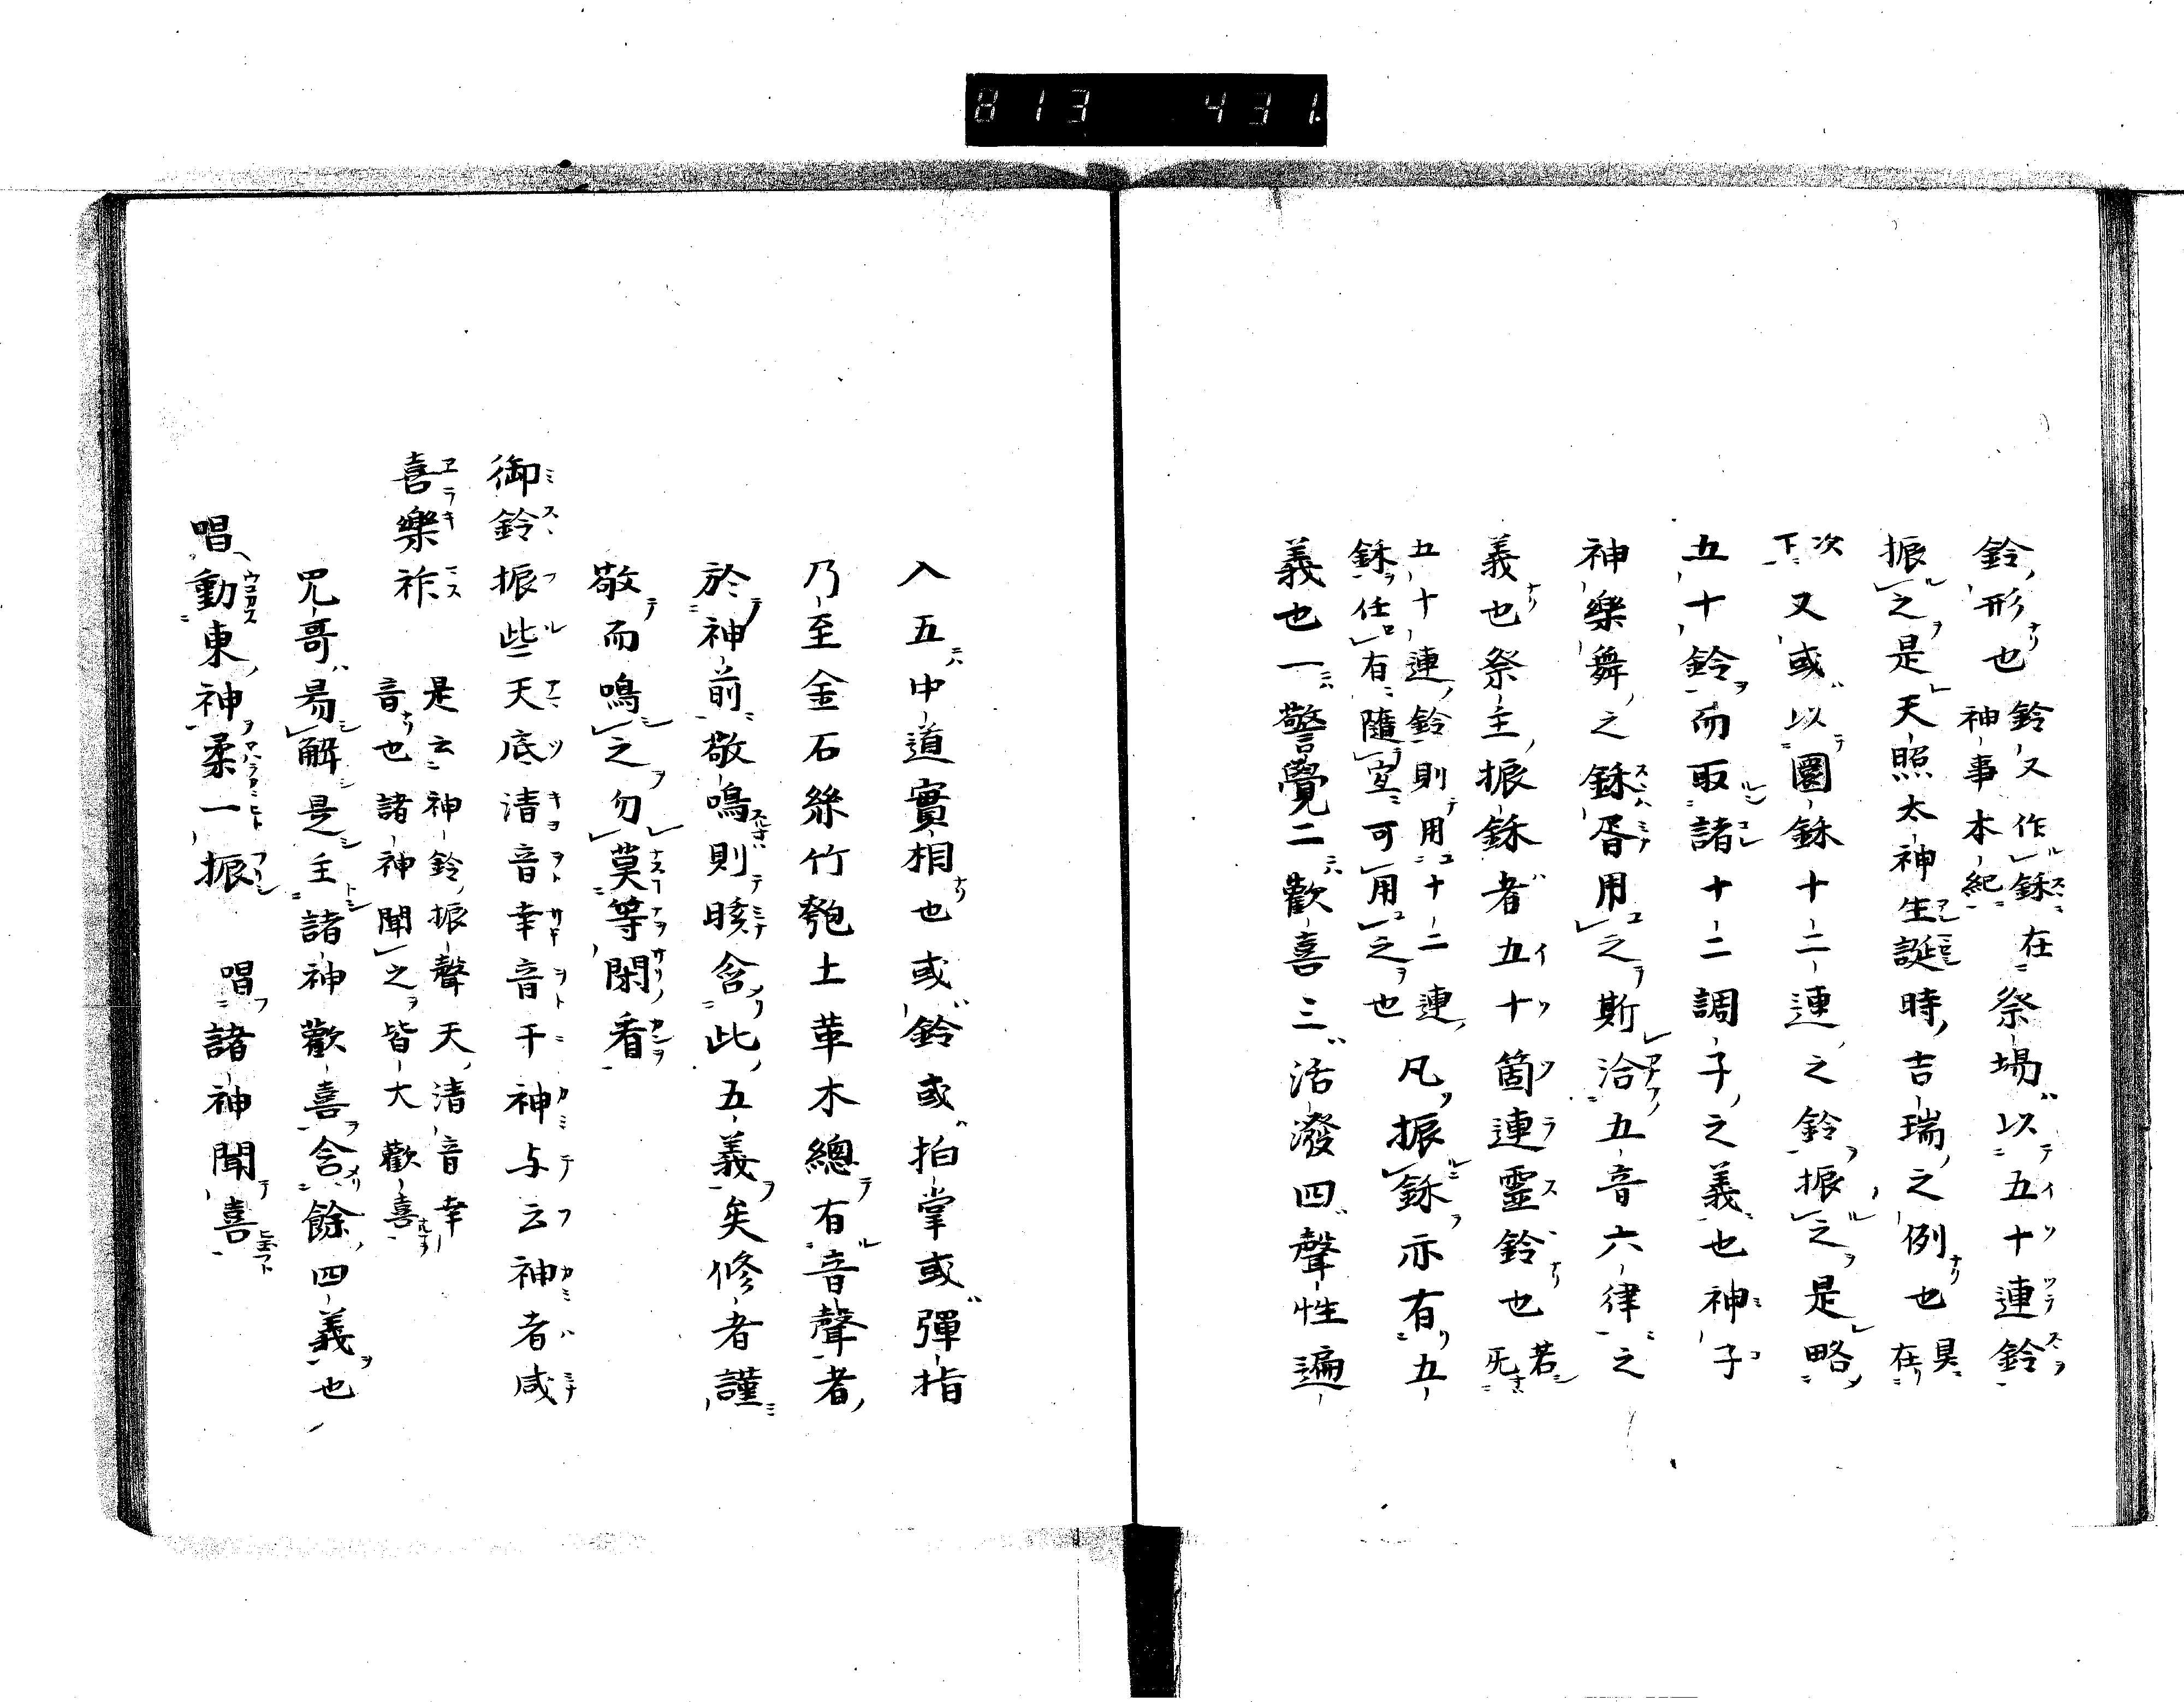 813 431.
鈴形也 鈴又作鉌在祭場以五十連鈴
神事本紀
振之是天照太神生誕時吉瑞之例也 具在
次下 又或以圜鉌十二連之鈴振之是略
五十鈴而取諸十二調子之義也神子
神樂舞之鉌胥用之斯洽五音六律之
義也祭主振鉌者五十箇連靈鈴也 若旡
五十連鈴則用十二連
鉌任有隨宜可用之也 凡振鉌亦有五
義也一警覺二歡喜三活潑四聲性遍
入五中道實相也或鈴或拍掌或彈指
乃至金石絲竹匏土革木總有音聲者
於神前敬鳴則晐含此五義矣修者謹
敬而鳴之勿莫等閑看
御鈴振些天底清音幸音千神与云神者咸
喜樂祚 是云神鈴振聲天清音幸
音也諸神聞之皆大歡喜
咒哥易解是主諸神歡喜含餘四義也
唱動東神柔一振 唱諸神聞喜